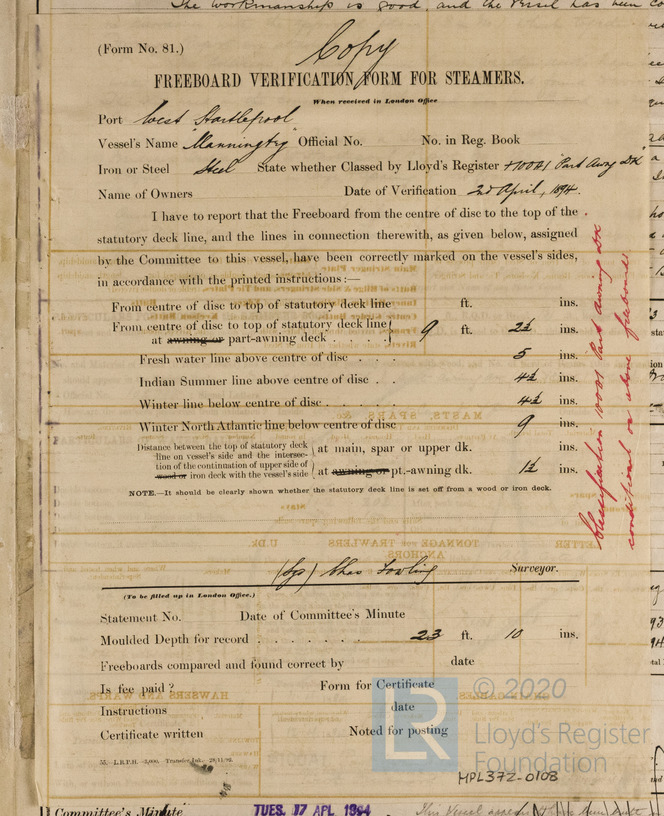 The workmanship is good, and the vessel has been co
(Form No. 81.)
Copy
FREEBOARD VERIFICATION FORM FOR STEAMERS.
When received in London Office
Port West Hartlepool
Vessel's Name "Manningtry" Official No. No. in Reg. Book
Iron or Steel Steel State whether Classed by Lloyd's Register +100A1 "Part Awng Dk"
Name of Owners Date of Verification 2nd April, 1894.
I have to report that the Freeboard from the centre of disc to the top of the
statutory deck line, and the lines in connection therewith, as given below, assigned
by the Committee to this vessel, have been correctly marked on the vessel's sides,
in accordance with the printed instructions:—
From centre of disc to top of statutory deck line ft. ins.
From centre of disc to top of statutory deck line
at awning or part-awning deck . . . . 9 ft. 2½ ins.
Fresh water line above centre of disc . . . 5 ins.
Indian Summer line above centre of disc . . . 4½ ins.
Winter line below centre of disc . . . . 4½ ins.
Winter North Atlantic line below centre of disc 9 ins.
Distance between the top of statutory deck
line on vessel's side and the intersec-
tion of the continuation of upper side of
wood or iron deck with the vessel's side
at main, spar or upper dk. ins.
at awning or pt.-awning dk. 1½ ins.
NOTE.—It should be clearly shown whether the statutory deck line is set off from a wood or iron deck.
Classification 100A1 Part awning Dk
conditional on above freeboard
(Sgd) Chas Surveyor.
(To be filled up in London Office.)
Statement No. Date of Committee's Minute
Moulded Depth for record . . . . . . . 23 ft. 10 ins.
Freeboards compared and found correct by date
Is fee paid? Form for Certificate
Instructions date
Certificate written Noted for posting
© 2020
LR
Lloyd's Register
Foundation
HPL372-0108
Committee's Minute
TUES. 17 APL 1894